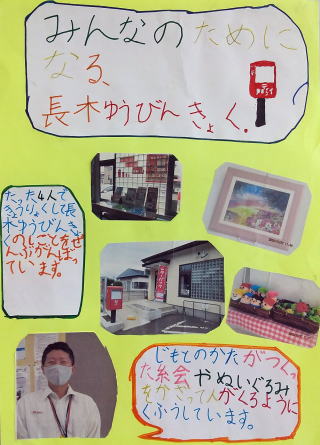 みんなのために
なる、
長木ゆうびんきょく.
たった4人で
きょうりょくして長
木ゆうびんきょ
くのしごとをぜ
んぶがんばっ
ています。
じもとのかたがつくっ
た絵会やぬいぐるみ
をかざって人がくるように
くふうしています。